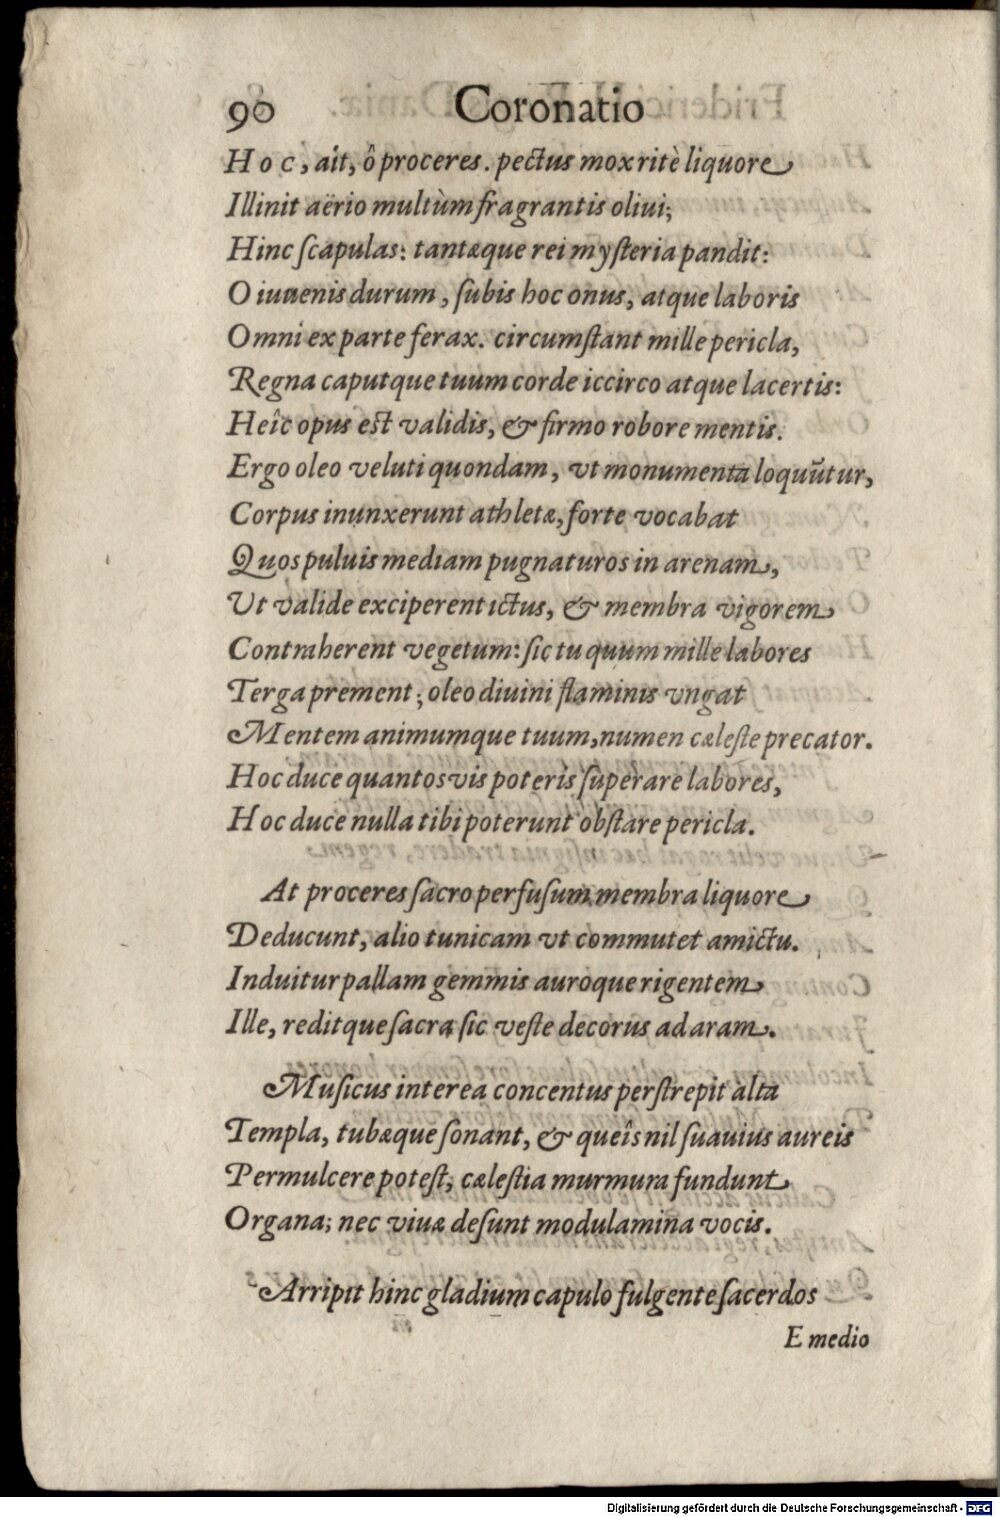 90 Coronatio
Hoc, ait, ô proceres. pectus mox ritè liquore
Illinit aërio multùm fragrantis oliui;
Hinc ſcapulas: tantæque rei myſteria pandit:
O iuuenis durum, ſubis hoc onus, atque laboris
Omni ex parte ferax. circumſtant mille pericla,
Regna caputque tuum corde iccirco atque lacertis:
Heîc opus eſt validis, & firmo robore mentis.
Ergo oleo veluti quondam, vt monumenta loquūtur,
Corpus inunxerunt athletæ, forte vocabat
Quos puluis mediam pugnaturos in arenam,
Ut valide exciperent ictus, & membra vigorem
Contraherent vegetum: ſic tu quum mille labores
Terga prement; oleo diuini flaminis vngat
Mentem animumque tuum, numen cæleſte precator.
Hoc duce quantosvis poteris ſuperare labores,
Hoc duce nulla tibi poterunt obſtare pericla.
At proceres ſacro perfuſum membra liquore
Deducunt, alio tunicam vt commutet amictu.
Induitur pallam gemmis auroque rigentem
Ille, reditque ſacra ſic veſte decorus ad aram.
Muſicus interea concentus perſtrepit alta
Templa, tubæque ſonant, & queîs nil ſuauius aureis
Permulcere poteſt, cæleſtia murmura fundunt
Organa; nec viuæ deſunt modulamina vocis.
Arripit hinc gladium capulo fulgente ſacerdos
E medio
Digitalisierung gefördert durch die Deutsche Forschungsgemeinschaft - DFG